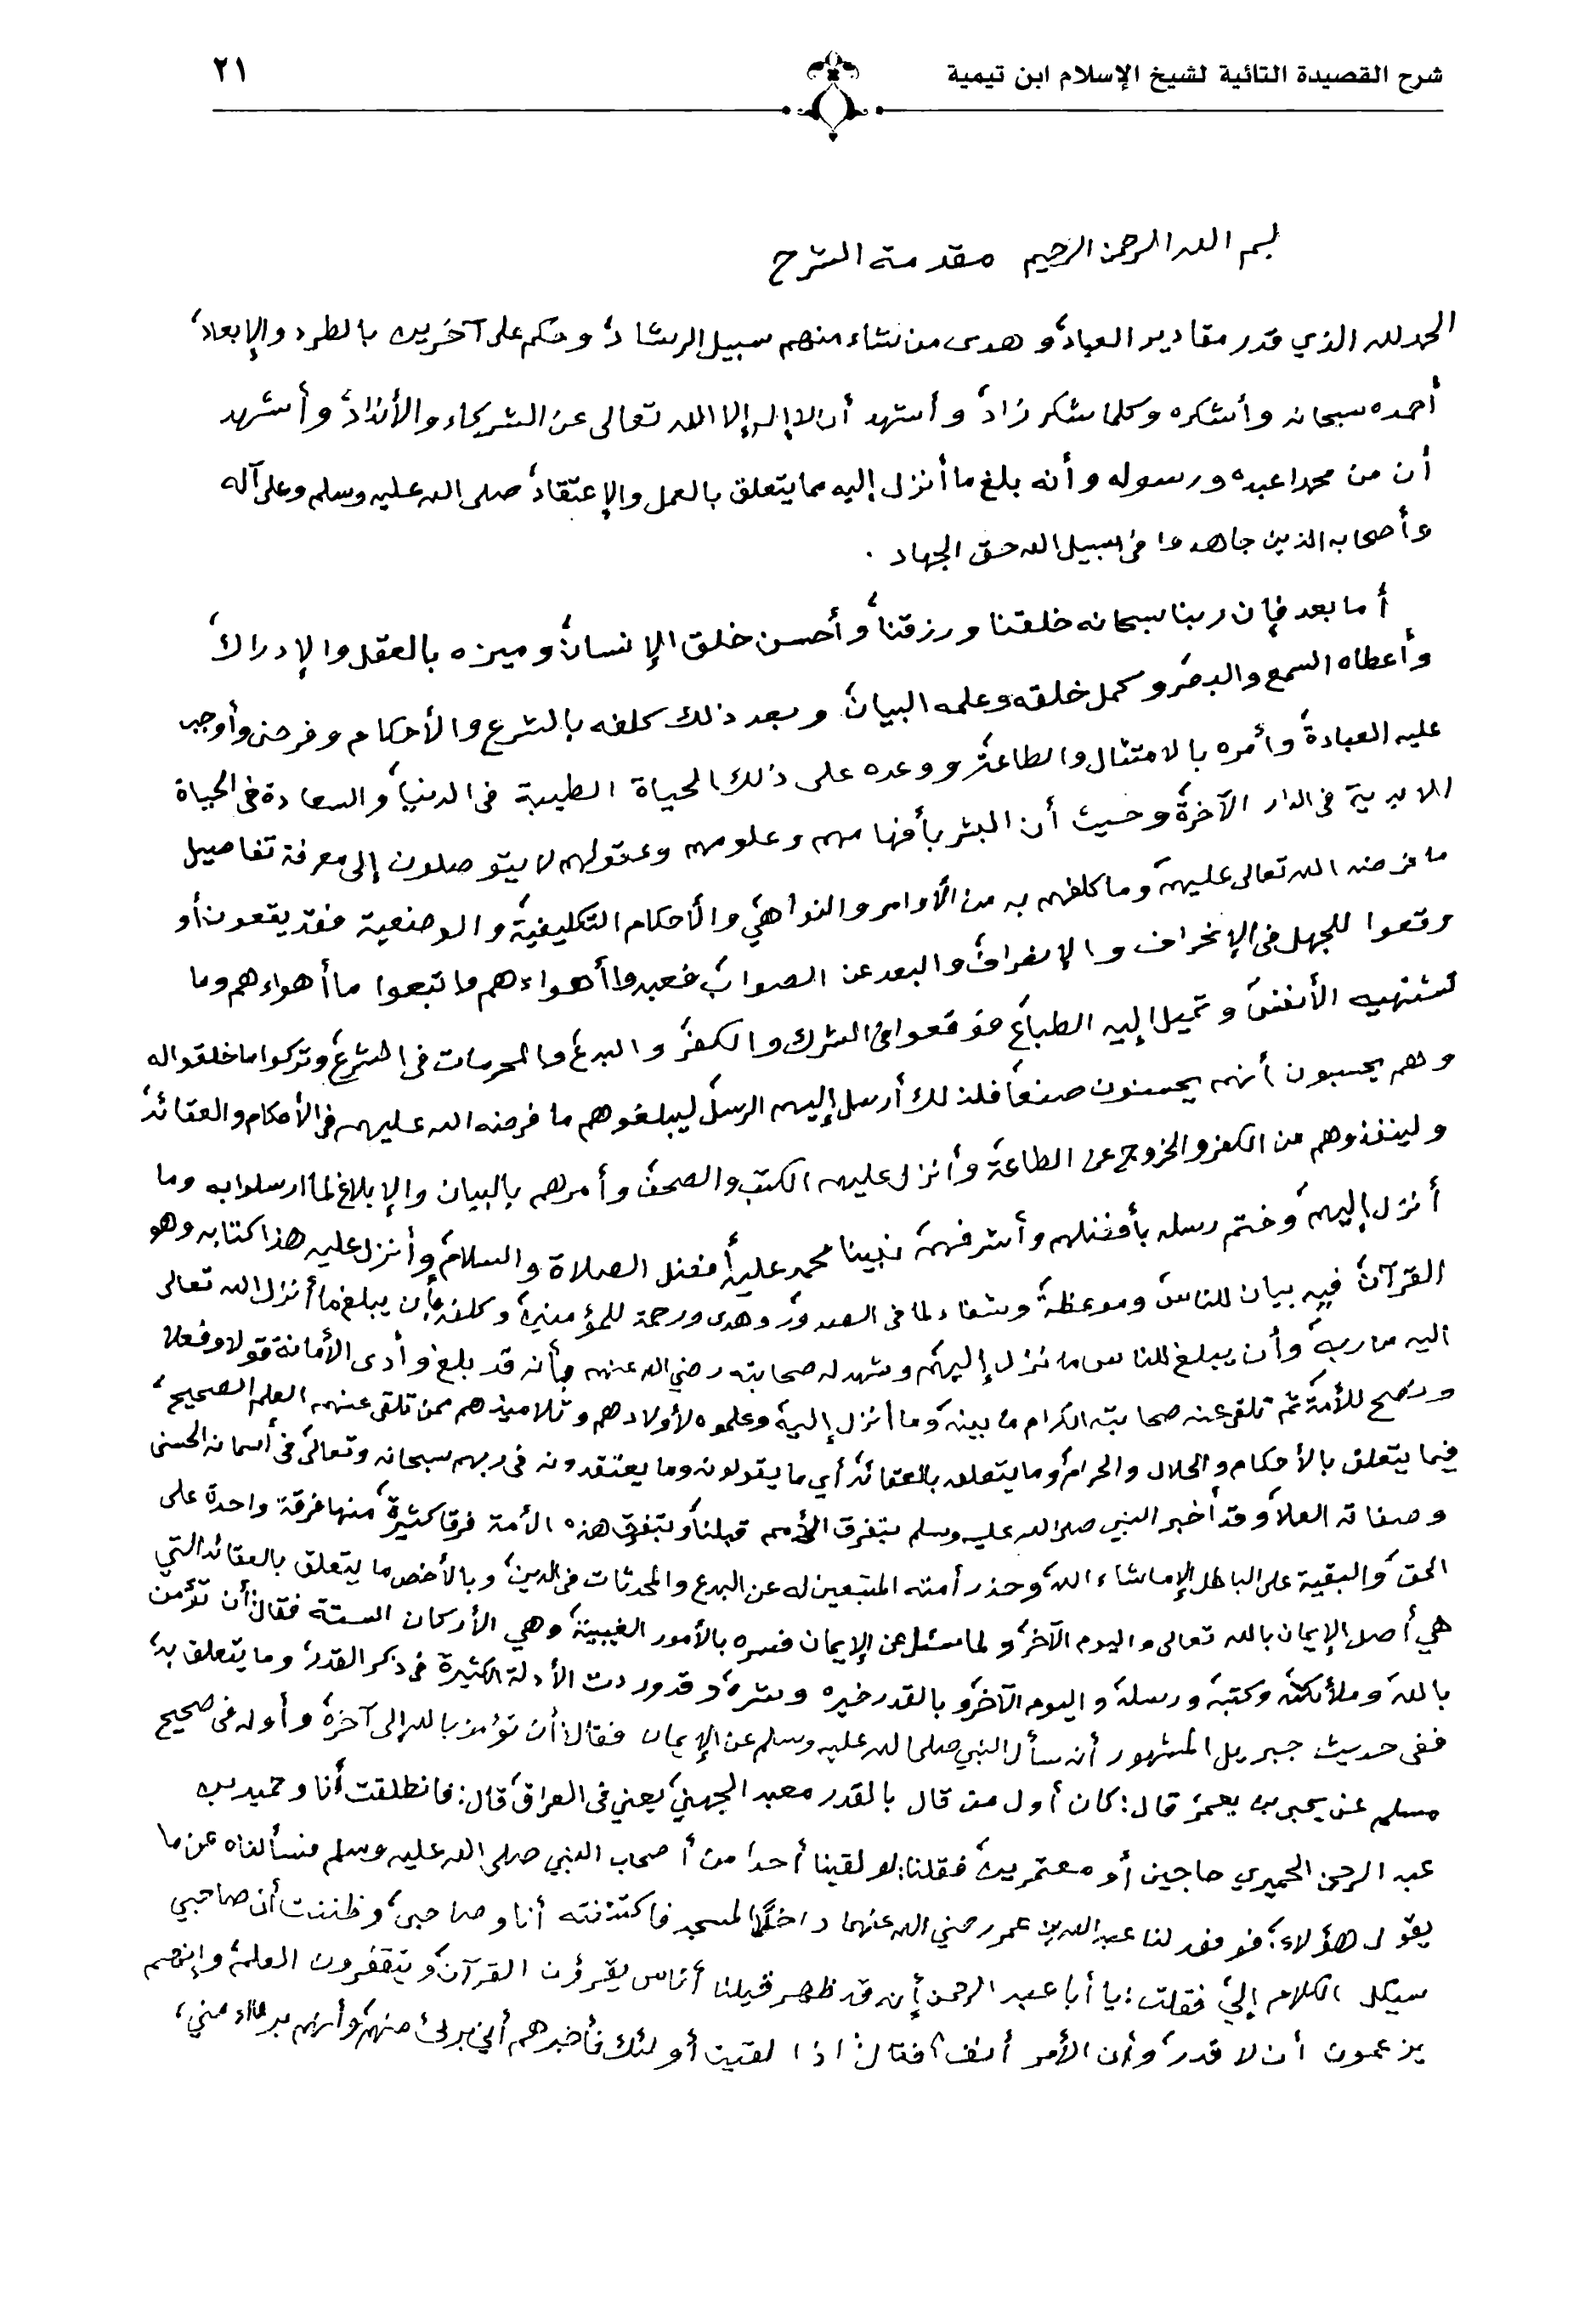 شرح القصيدة التائية لشيخ الإسلام ابن تيمية ٢١
بسم الله الرحمن الرحيم مقدمة الشرح
الحمد لله الذي قدر مقادير العباد، و هدى من شاء منهم سبيل الرشاد، و حكم على آخرين بالطرد والإبعاد،
أحمده سبحانه وأشكره وكلما شكر زاد، وأشهد أن لا إله إلا الله تعالى عن الشركاء والأنداد، وأشهد
أن من محمدا عبده ورسوله وأنه بلغ ما أنزل إليه مما يتعلق بالعمل والإعتقاد، صلى الله عليه وسلم وعلى آله
وأصحابه الذين جاهدوا في سبيل الله حق الجهاد .
أما بعد فإن ربنا سبحانه خلقنا ورزقنا، وأحسن خلق الإنسان، وميزه بالعقل والإدراك،
وأعطاه السمع والبصر، وكمل خلقه وعلمه البيان، وبعد ذلك كلفه بالشرع والأحكام وفرض وأوجب
عليه العبادة، وأمره بالامتثال والطاعة، ووعده على ذلك الحياة الطيبة في الدنيا، والسعادة في الحياة
الابدية في الدار الآخرة، وحيث أن البشر بأفهامهم وعلومهم وعقولهم لا يتوصلون إلى معرفة تفاصيل
ما فرضه الله تعالى عليهم، وما كلفهم به من الأوامر والنواهي، والأحكام التكليفية، والوضعية فقد يقعون أو
وقعوا للجهل في الإنحراف والإنصراف، والبعد عن الصواب، فعبدوا أهواءهم واتبعوا ما أهواءهم وما
تشتهيه الأنفس، وتميل إليه الطباع، فوقعوا في الشرك والكفر، والبدع والمحرمات في الشرع، وتركوا ما خلقوا له
وهم يحسبون أنهم يحسنون صنعا، فلذلك أرسل إليهم الرسل، ليبلغوهم ما فرضه الله عليهم في الأحكام والعقائد،
ولينقذوهم من الكفر والخروج عن الطاعة، وأنزل عليهم الكتب والصحف، وأمرهم بالبيان والإبلاغ لما ارسلوا به وما
أنزل إليهم، وختم رسله بأفضلهم وأشرفهم، نبينا محمد عليه أفضل الصلاة والسلام، وأنزل عليه هذا كتابه وهو
القرآن، فيه بيان للناس، وموعظة، وشفاء لما في الصدور، وهدى ورحمة للمؤمنين، وكلفه بأن يبلغ ما أنزل الله تعالى
اليه من ربه، وأن يبلغ للناس ما نزل إليهم، وشهد له صحابته رضي الله عنهم بأنه قد بلغ وأدى الأمانة قولا وفعلا
ونصح للأمة، ثم تلقى عنه صحابته الكرام ما بينه، وما أنزل إليه، وعلموه لأولادهم وتلاميذهم ممن تلقى عنهم العلم الصحيح،
فيما يتعلق بالأحكام والحلال والحرام، وما يتعلق بالعقائد، أي ما يقولونه وما يعتقدونه في ربهم سبحانه وتعالى، في أسمائه الحسنى
وصفاته العلا، وقد أخبر النبي صلى الله عليه وسلم بتفرق الأمم قبلنا، وبتفرق هذه الأمة فرقا كثيرة، منها فرقة واحدة على
الحق، والبقية على الباطل إلا ما شاء الله، وحذر أمته المتبعين له عن البدع والمحدثات في الدين، وبالأخص ما يتعلق بالعقائد التي
هي أصل الإيمان بالله تعالى واليوم الآخر، ولما سئل عن الإيمان فسره بالأمور الغيبية، وهي الأركان الستة فقال: أن تؤمن
بالله، وملائكته وكتبه ورسله، واليوم الآخر، وبالقدر خيره وشره، وقد وردت الأدلة الكثيرة في ذكر القدر، وما يتعلق به،
ففي حديث جبريل المشهور أنه سأل النبي صلى الله عليه وسلم عن الإيمان فقال: أن تؤمن بالله إلى آخره، وأوله في صحيح
مسلم عن يحيى بن يعمر، قال: كان أول من قال بالقدر معبد الجهني، يعني في العراق، قال: فانطلقت أنا وحميد بن
عبد الرحمن الحميري حاجين أو معتمرين، فقلنا: لو لقينا أحدا من أصحاب النبي صلى الله عليه وسلم فسألناه عن ما
يقول هؤلاء؟ فوفق لنا عبد الله بن عمر رضي الله عنهما داخلًا المسجد فاكتنفته أنا وصاحبي، وظننت أن صاحبي
سيكل الكلام إلي، فقلت: يا أبا عبد الرحمن إنه قد ظهر قبلنا أناس يقرؤن القرآن، ويتقفرون العلم، وإنهم
يزعمون أن لا قدر، وأن الأمر أنف؟ فقال: اذا لقيت أولئك فأخبرهم أني برئ منهم، وأنهم برءاء مني،